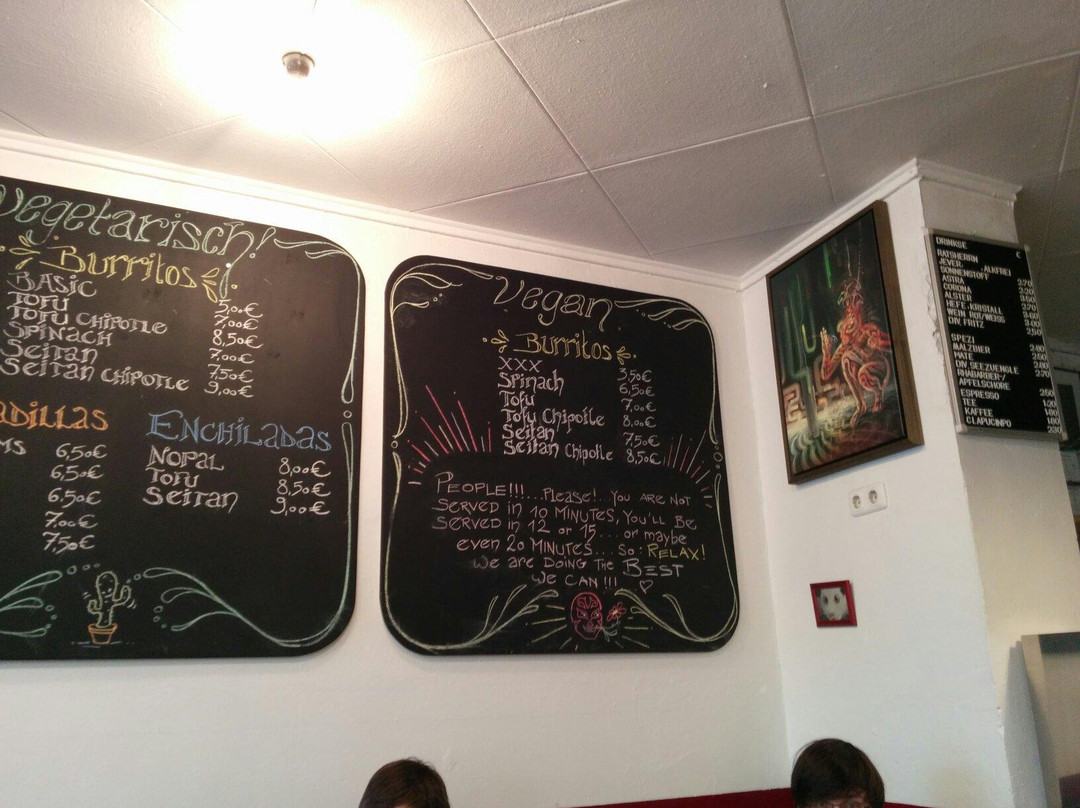 Vegetarisch!
Burritos
BASIC 5,0€
TOFU 7,00€
TOFU CHIPOTLE 8,50€
SPINACH 7,00€
SEITAN 7,50€
SEITAN CHIPOTLE 9,00€
ADILLAS
MS 6,50€
6,50€
6,50€
7,00€
7,50€
ENCHILADAS
NOPAL 8,00€
TOFU 8,50€
SEITAN 9,00€
Vegan
Burritos
XXX 3,50€
Spinach 6,50€
Tofu 7,00€
Tofu Chipotle 8,00€
Seitan 7,50€
Seitan Chipotle 8,50€
PEOPLE!!!...Please!..YOU ARE NOT
SERVED in 10 MINUTES, YOU'LL BE
SERVED in 12 or 15... or maybe
even 20 MINUTES... So: RELAX!
We are DOING THE BEST
WE CAN!!! ♡
DRINKSE €
RATSHERRN
JEVER, ALKFREI
SONNENSTOFF
ASTRA
CORONA
ALSTER
HEFE,KRISTALL
WEIN ROT/WEISS
DIV. FRITZ
SPEZI
MALZBIER
MATE
DIV.SEEZUENGLE
RHABARBER-/
APFELSCHORE
ESPRESSO
TEE
KAFFEE
CLAPUCINPO